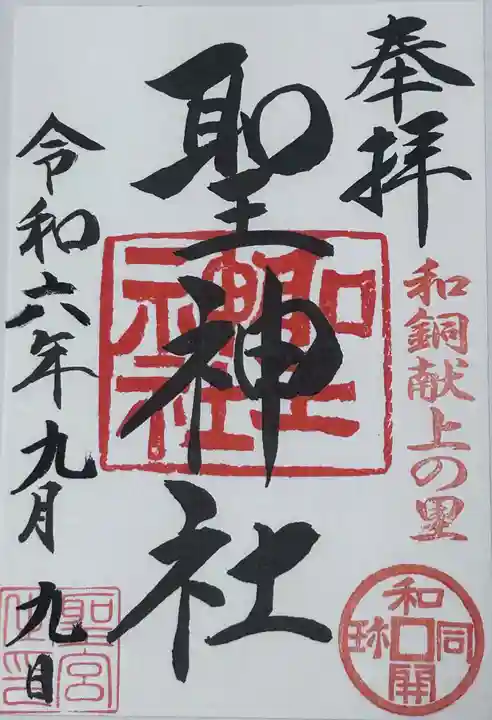 奉拝
和銅献上の里
和同開珎
聖神社
聖神社
令和六年九月九日
聖宮